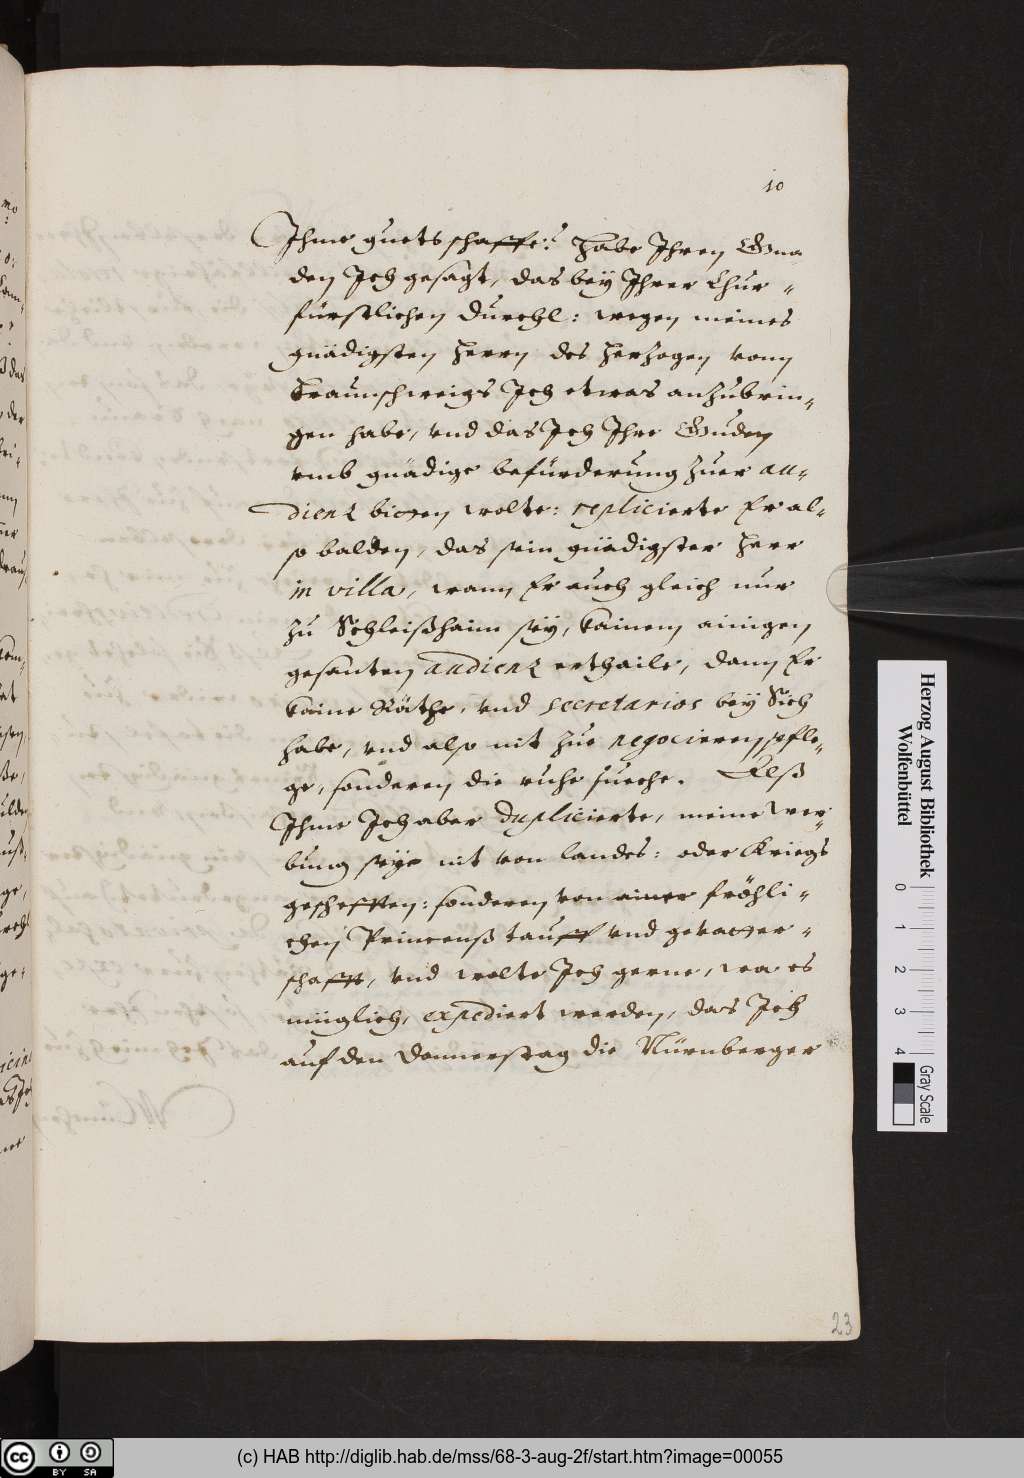 10
Ihme guets schaffe? Habe Ihren Gna
den Ich gesagt, das bey Ihrer Chur-
fürstlichen Durchl: wegen meines
gnädigsten Herrn des Herzogen vonn
Braunschweigs Ich etwas anzubrin-
gen habe, vnd das Ich Ihre Gnaden
vmb gnädige befürderung zuer au-
dienz bitten wolte: replicierte Er al-
so balden, das sein gnädigster Herr
in villa, wann Er auch gleich nur
zu Schleißhaim sey, kainem ainigen
gesanten audienz erthaile, dann Er
kaine Räthe, vnd secretarios bey Sich
habe, vnd also nit zue negocieren pfle-
ge, sonderen die ruhe sueche. Alß
Ihme Ich aber duplicierte, meine wer-
bung seye nit von landes: oder Kriegs
geschefften: sonderen von ainer fröhli-
chen Princenß tauff vnd gevatter-
schafft, vnd wolte Ich gerne, wa es
müglich, expediert werden, das Ich
auf den Donnerstag die Nürnberger
23
Herzog August Bibliothek
Wolfenbüttel
0 1 2 3 4
Gray Scale
(c) HAB http://diglib.hab.de/mss/68-3-aug-2f/start.htm?image=00055
cc BY SA